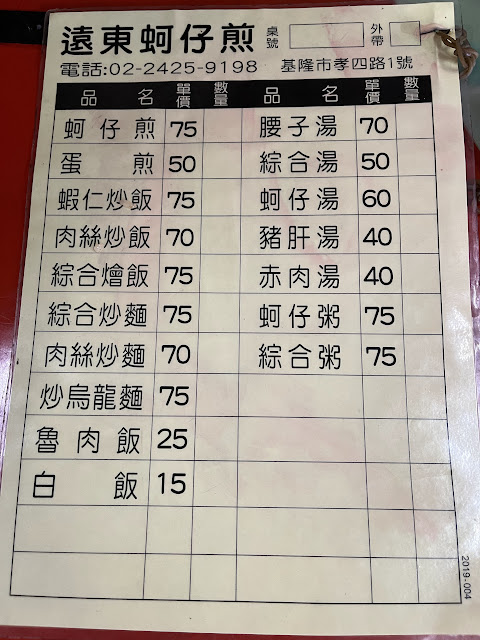 遠東蚵仔煎 桌號 外帶
電話:02-2425-9198 基隆市孝四路1號
品名 單價 數量 品名 單價 數量
蚵仔煎 75 腰子湯 70
蛋煎 50 綜合湯 50
蝦仁炒飯 75 蚵仔湯 60
肉絲炒飯 70 豬肝湯 40
綜合燴飯 75 赤肉湯 40
綜合炒麵 75 蚵仔粥 75
肉絲炒麵 70 綜合粥 75
炒烏龍麵 75
魯肉飯 25
白飯 15
2019-004